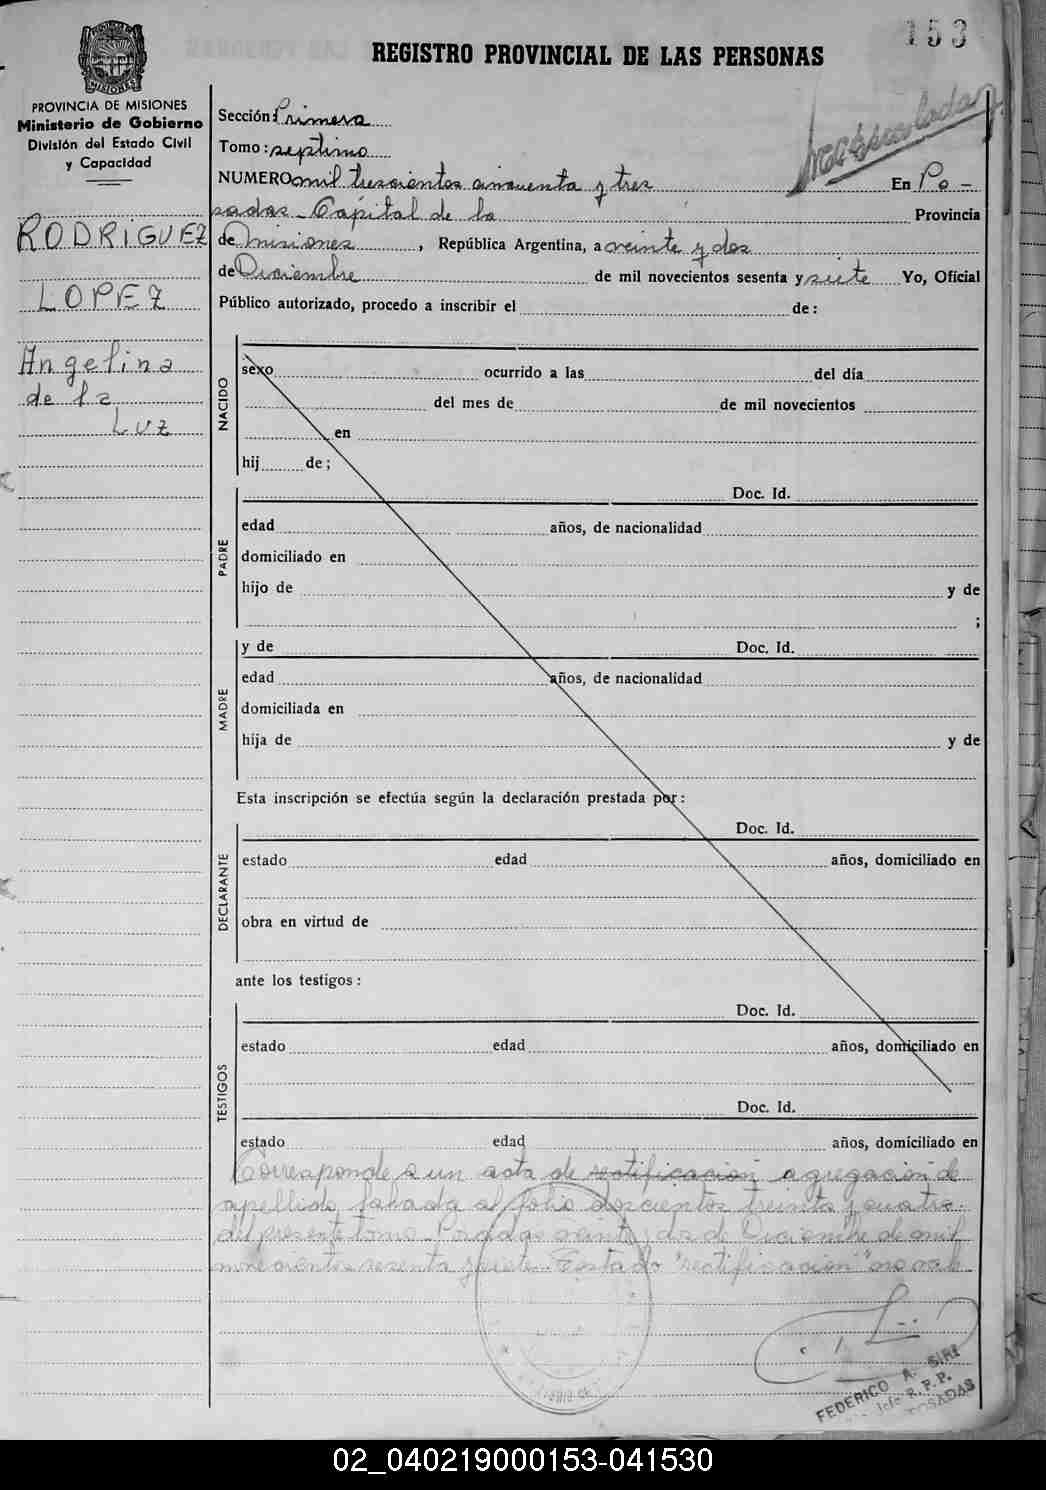 153
REGISTRO PROVINCIAL DE LAS PERSONAS
PROVINCIA DE MISIONES
Ministerio de Gobierno
División del Estado Civil
y Capacidad
RODRIGUEZ
LOPEZ
Angelina
de la
LUZ
Sección: Primera
Tomo: septimo
NUMERO mil trescientos cincuenta y tres En Po-
sadas Capital de la Provincia
de Misiones, República Argentina, a veinte y dos
de Diciembre de mil novecientos sesenta y siete Yo, Oficial
Público autorizado, procedo a inscribir el de:
NACIDO
sexo ocurrido a las del día
del mes de de mil novecientos
en
hij de;
PADRE
Doc. Id.
edad años, de nacionalidad
domiciliado en
hijo de y de
;
MADRE
y de Doc. Id.
edad años, de nacionalidad
domiciliada en
hija de y de
Esta inscripción se efectúa según la declaración prestada por:
DECLARANTE
Doc. Id.
estado edad años, domiciliado en
obra en virtud de
ante los testigos:
TESTIGOS
Doc. Id.
estado edad años, domiciliado en
Doc. Id.
estado edad años, domiciliado en
Corresponde a un acta de rectificacion agregación de
apellido labrada al folio doscientos treinta y cuatro
del presente tomo. Posadas veinte y dos de Diciembre de mil
novecientos sesenta y siete. Testado "rectificación" no vale
FEDERICO A. SIRI
Jefe R. P. P.
POSADAS
02_040219000153-041530